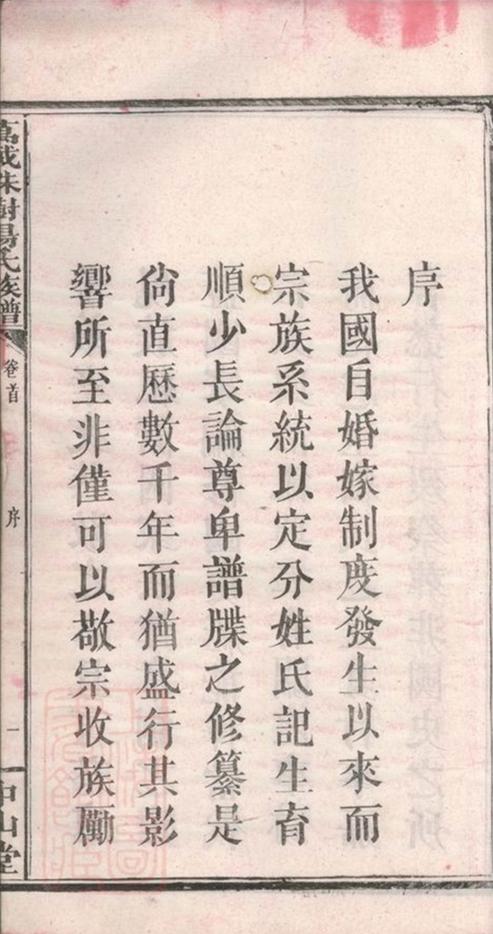 序
我國自婚嫁制度發生以來而
宗族系統以定分姓氏記生育
順少長論尊卑譜牒之修纂是
尙直歷數千年而猶盛行其影
響所至非僅可以敬宗收族勵
族譜
卷首
序
一
中山堂